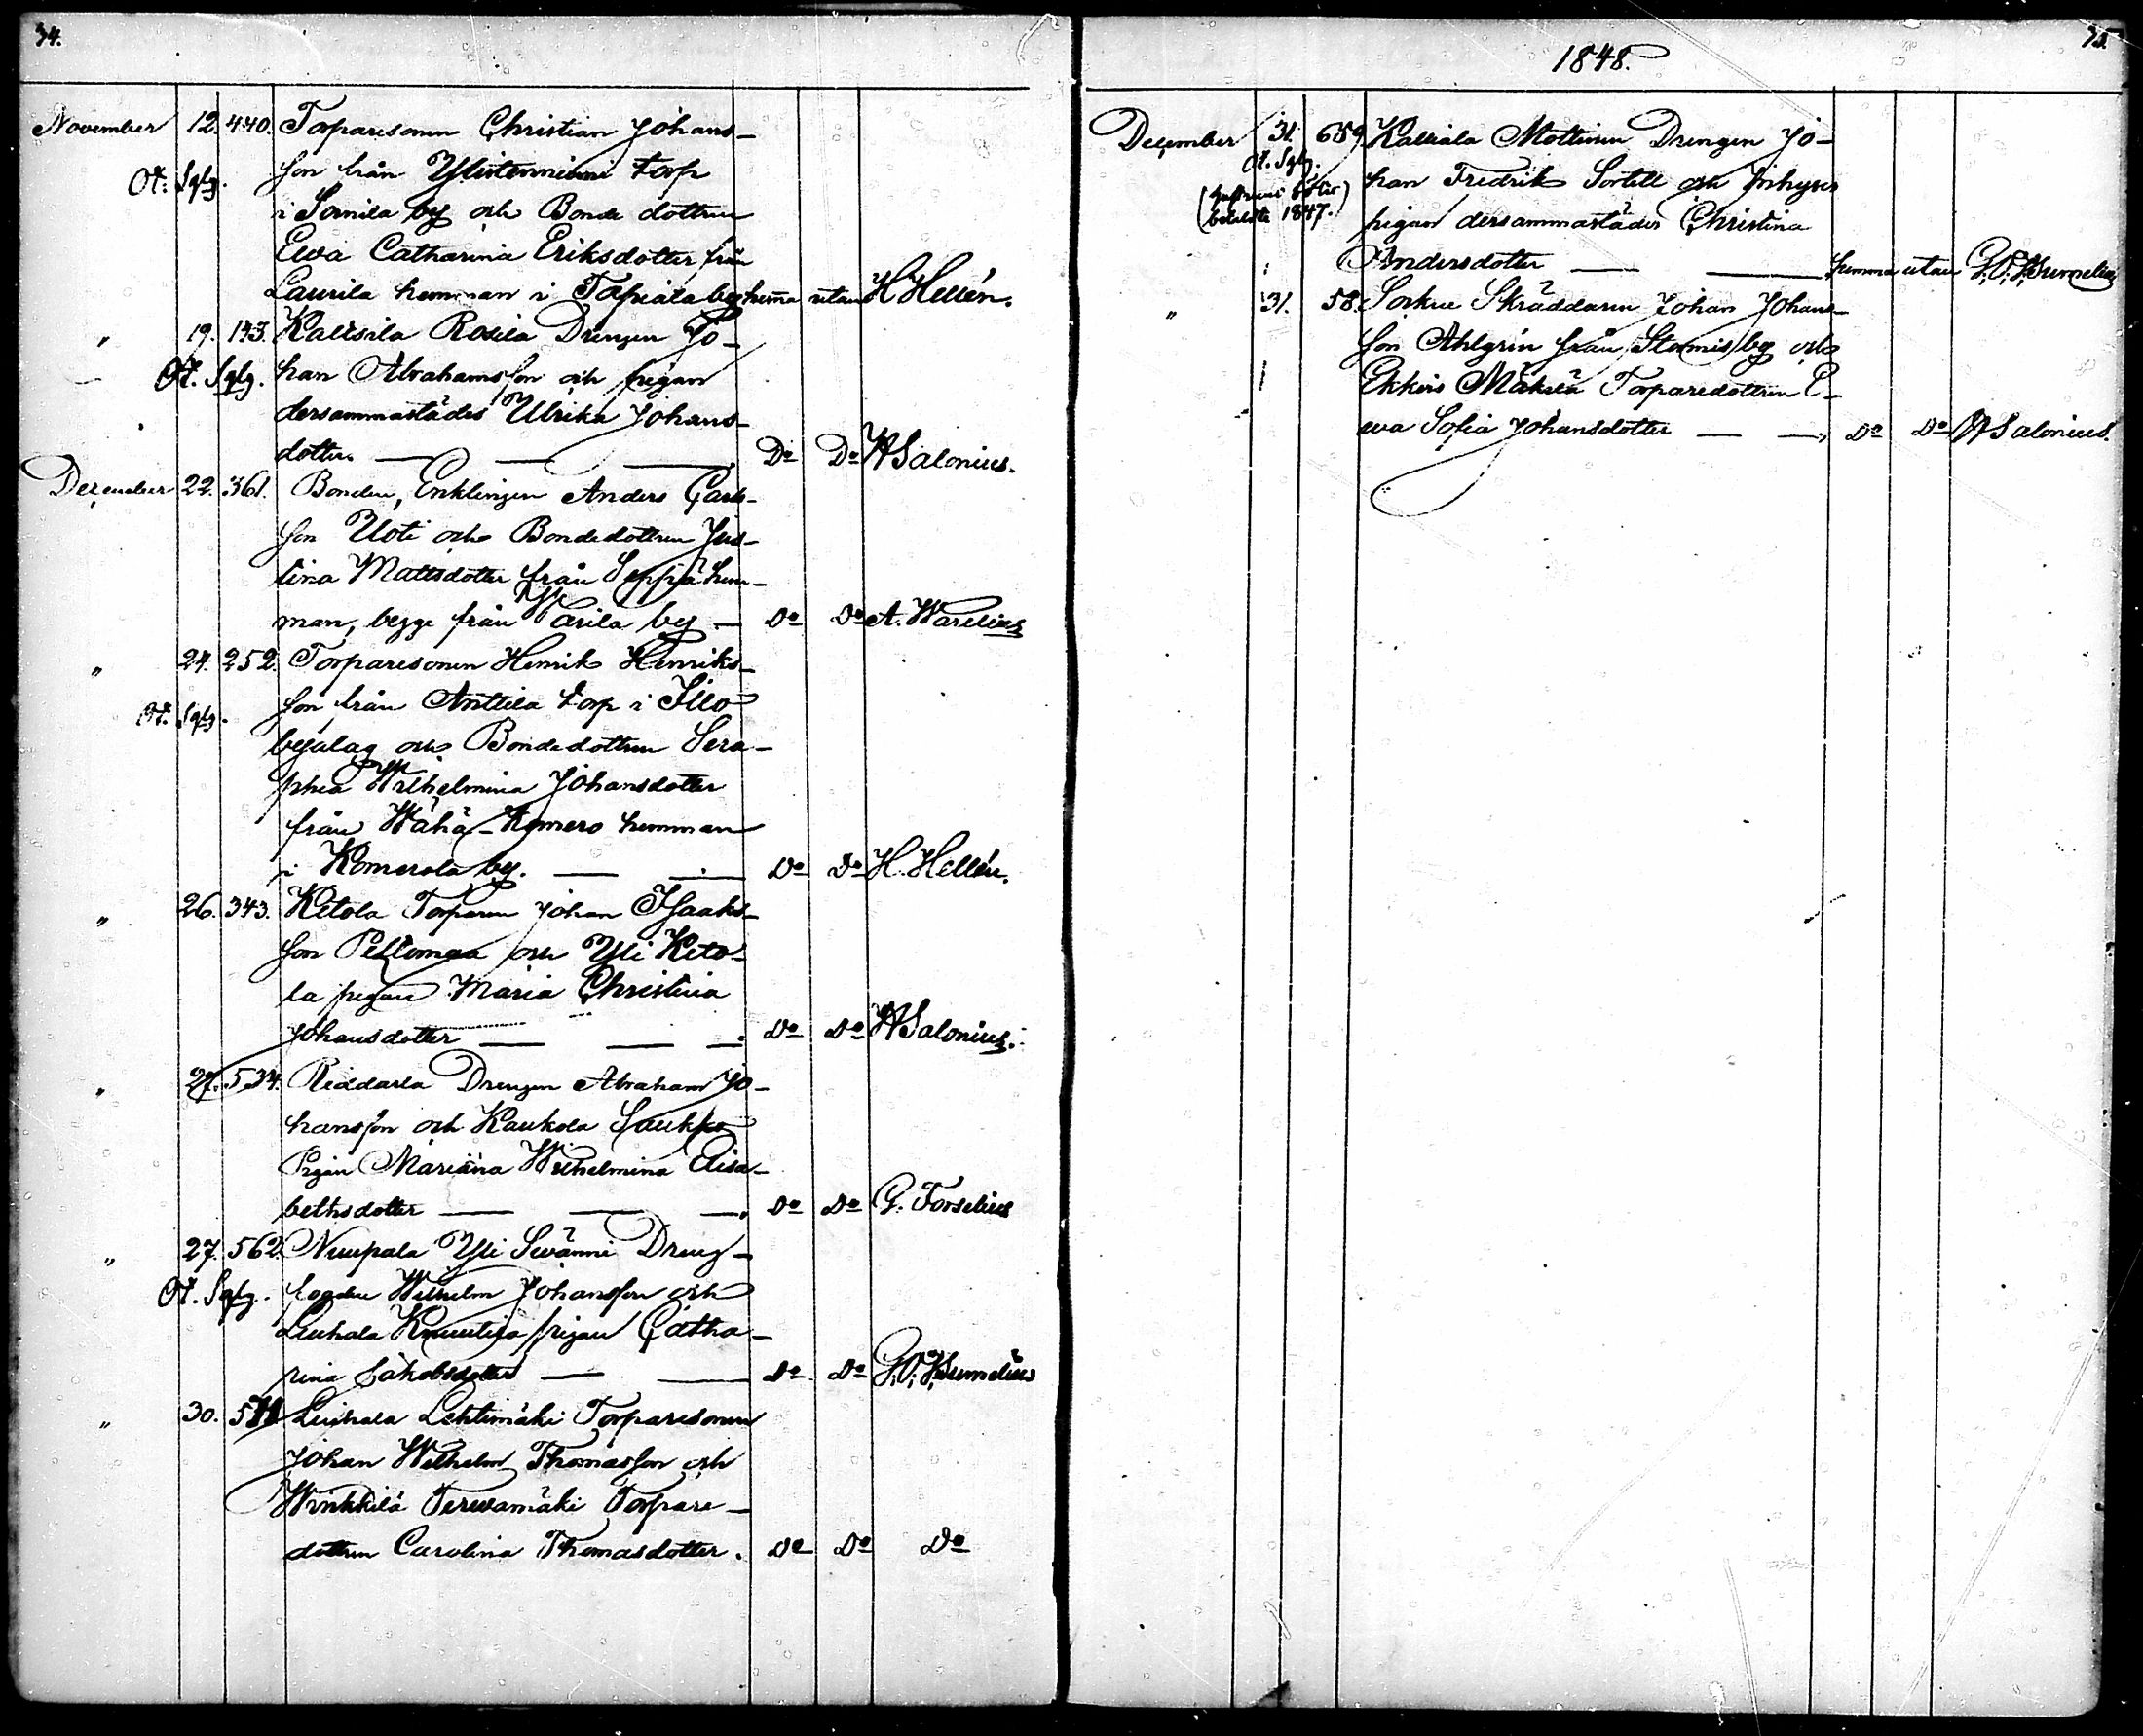 34.
November 12. 440. Torparesonen Christian Johans-
Ot. Sglg. son från Ylistenniemi torp
i Sornila by och Bonde dottren
Ewa Catharina Eriksdotter från
Laurila hemman i Torpiala by hema utan H Hellén.
" 19. 143. Kallsila Rosila Drengen Jo-
Ot. Sglg. han Abrahamsson och pigan
dersammastädes Ulrika Johans-
dotter. — — — Do Do W Salonius.
December 22. 361. Bonden, Enklingen Anders Carls-
son Uoti och Bondedottren Jus-
tina Mattsdotter från Seppä hem-
man, begge från Warila by — Do Do A. Warelius
" 24. 252. Torparesonen Henrik Henriks-
Ot. Sglg. son från Anttila torp i Illo
byalag och Bondedottren Sera-
phia Wilhelmina Johansdotter
från Wähä-Komero hemman
i Komerola by. — — Do Do H. Hellén.
" 26. 343. Ketola Torparen Johan Isaaks-
son Peltomaa och Yli Keto-
la pigan Maria Christina
Johansdotter — — — Do Do W Salonius.
" 27. 534. Riddarla Drengen Abraham Jo-
hansson och Kaukola Saukko
Pigan Mariana Wilhelmina Elisa-
bethsdotter — — — Do Do G. Forselius
" 27. 562. Nuupala Yli Swänni Dreng-
Ot. Sglg. fogden Wilhelm Johansson och
Liuhala Knuutila pigan Catha-
rina Jakobsdotter — — Do Do G. O. Humelius
" 30. 571 Liuhala Lehtimäki Torparesonen
Johan Wilhelm Thomasson och
Winkkilä Terwamäki Torpare-
dottren Carolina Thomasdotter. Do Do Do
35
1848.
December 31. 659. Kalliala Mottinen Drengen Jo-
Ot. Sglg. han Fredrik Sortell och Inhyses
betalte 1847.) pigan dersammastädes Christina
Andersdotter — — hemma utan G. O. Humelius
" 31. 58. Sorkee Skräddaren Johan Johans-
son Ahlgrén från Stormis by och
Ekkers Mäkelä Torparedottren E-
wa Sofia Johansdotter — — Do Do W Salonius.